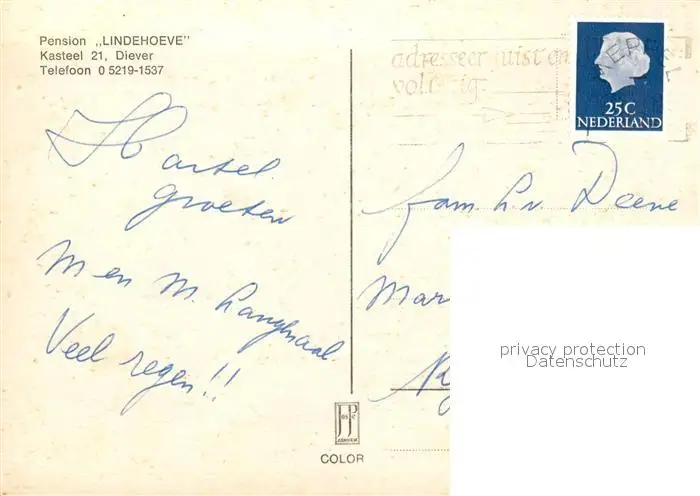 Pension „LINDEHOEVE"
Kasteel 21, Diever
Telefoon 0 5219-1537
adresseer juist en
voll ig
25C
NEDERLAND
Hartel.
groeten
M en M. Langhaal
Veel regen!!
fam. L. v. Deene
Mar
privacy protection
Datenschutz
COLOR